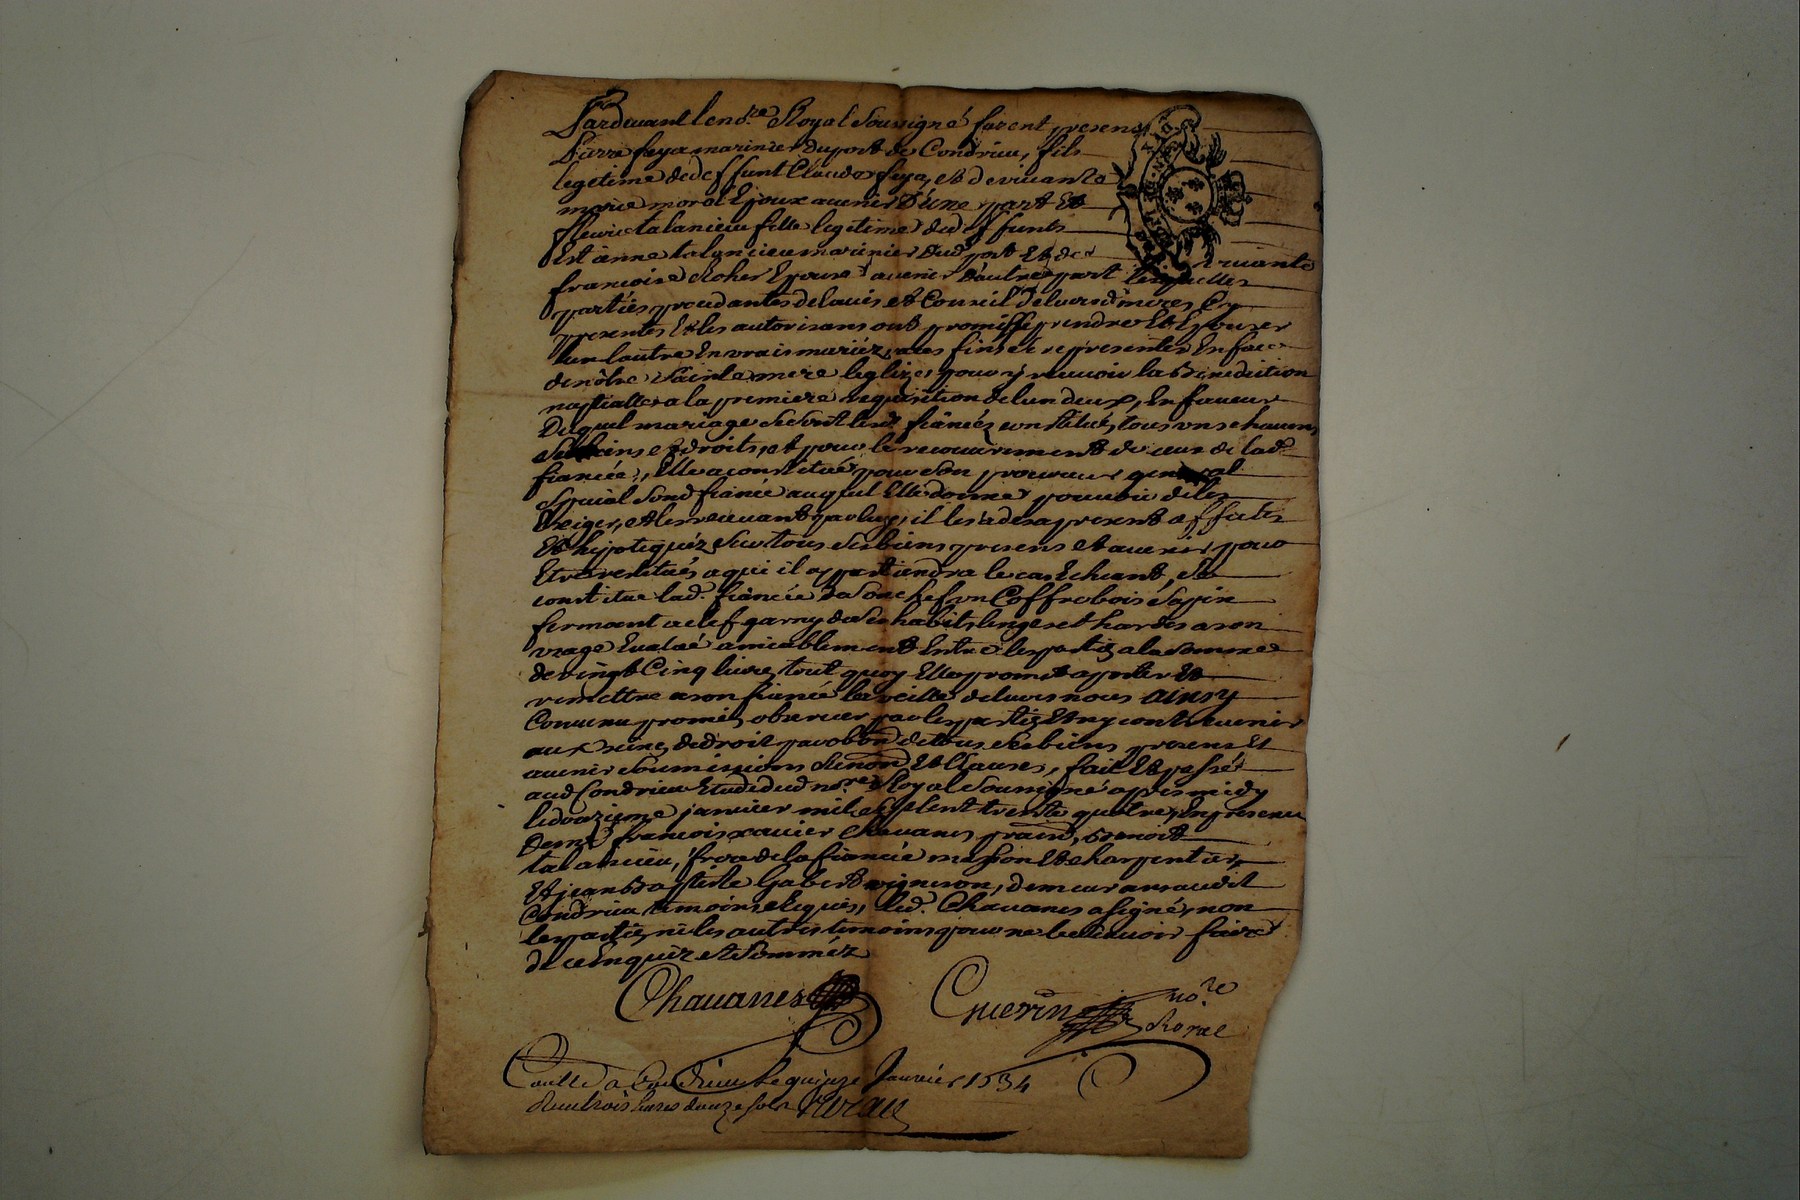 Pardevant le no.re Royal soussigné furent presens
Pierre faya marinier du port de Condrieu, fils
legetime de deffunt Claude faya, et de vivante
marie morel Epoux avenir D'une part Et
fleurie talanieu fille legetime de deffunts
Estienne talancieu marinier dud port Et de vivante
francoise Roher Epouse avenir D'autre part lesquelles
parties proceedantes de lavis et Conseil de leursd meres Cy
presentes Et les autorisans ont promis se prendre Et Epouser
lun lautre En vrais mariéz, a ces fins se representer En face
de nôtre Sainte mere leglize, pour y recevoir la Benediction
nuptialle a la premiere requisition de lun deux, En faveur
Duquel mariage se sont lesd fiancés constitués tous uns chacuns
ses biens et droits, et pour le recouvrement de ceux de lad.
fiancée, Elle a constitué pour son procureur general
special sond fiancé auquel Elle donne pouvoir de les
Exiger, et les recevant par luy, il les a des a present affectes
Et hipotequéz sur tous ses biens presens et avenir pour
Etre restitués a qui il appartiendra le cas Echeant, se
constitue lad. fiancée de son chef un Coffre bois sapin
fermant a clef garny de ses habits linges et hardes a son
uzage Evalué amiablement Entre les parties a la somme
de vingt Cinq livres, tout quoy Elle promet aporter Et
remettre a son fiancé la veille de leurs noces ainsy
Convenu promis observer par les parties Et ny contrevenir
aux peines de droit par obon de tous ses biens presens Et
avenir soumissions Renon Et Clauses, fait Et passé
aud Condrieu Etude dud no.re Royal soussigné apres midy
le douzieme janvier mil sept cent trente quatre, En presence
De me francois xavier Chavanes, pratn, Benoist
talancieu, frere de la fiancée masson Et charpentier,
Et jean Baptiste Gabert vigneron, demeurans audit
Condrieu temoins Requis, led. Chavanes a signé, non
les parties, ni les autres temoins pour ne le scavoir faire
de ce Enquiz et sommez
Chavanes Guerin no.re
Royal
Conllé a Condrieu le quinze Janvier 1734
Receu trois livres douze sols